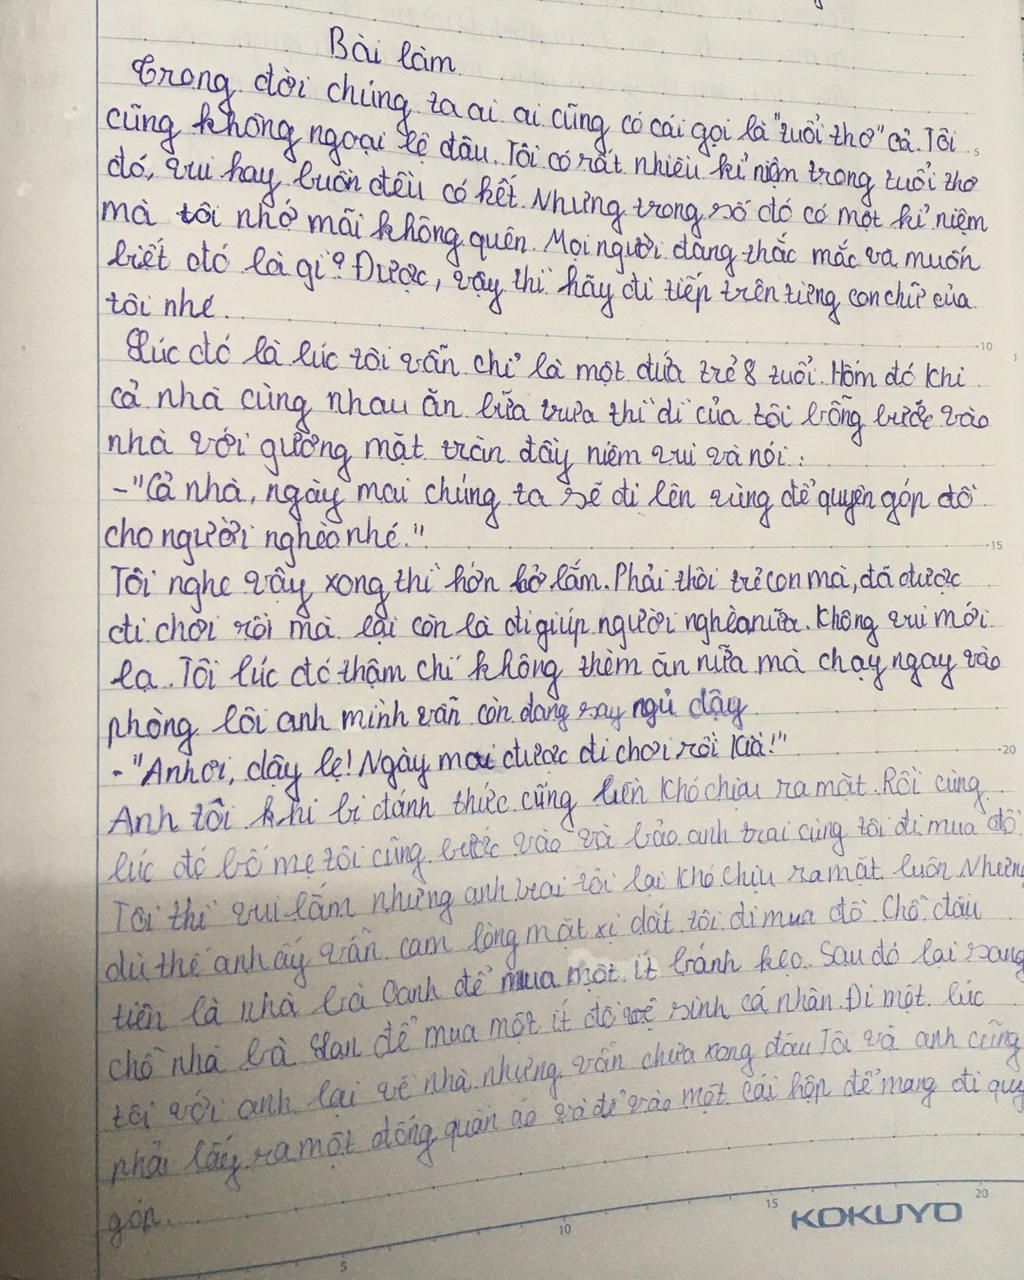 Bài làm
Trong đời chúng ta ai ai cũng có cái gọi là "tuổi thơ" cả. Tôi
cũng không ngoại lệ đâu. Tôi có rất nhiều kỉ niệm trong tuổi thơ
đó, vui hay buồn đều có hết. Nhưng trong số đó có một kỉ niệm
mà tôi nhớ mãi không quên. Mọi người đang thắc mắc và muốn
biết đó là gì? Được, vậy thì hãy đi tiếp trên từng con chữ của
tôi nhé.
Lúc đó là lúc tôi vẫn chỉ là một đứa trẻ 8 tuổi. Hôm đó khi
cả nhà cùng nhau ăn bữa trưa thì dì của tôi bỗng bước vào
nhà với gương mặt tràn đầy niềm vui và nói:
-"Cả nhà, ngày mai chúng ta sẽ đi lên vùng để quyên góp đồ
cho người nghèo nhé."
Tôi nghe vậy xong thì hớn hở lắm. Phải thôi trẻ con mà, đã được
đi chơi rồi mà lại còn là đi giúp người nghèo nữa. Không vui mới
lạ. Tôi lúc đó thậm chí không thèm ăn nữa mà chạy ngay vào
phòng lôi anh mình vẫn còn đang say ngủ dậy
-"Anh ơi, dậy lẹ! Ngày mai được đi chơi rồi kìa!"
Anh tôi khi bị đánh thức cũng liền khó chịu ra mặt. Rồi cùng
lúc đó bố mẹ tôi cũng bước vào và bảo anh trai cùng tôi đi mua đồ.
Tôi thì vui lắm nhưng anh trai tôi lại khó chịu ra mặt luôn Nhưng
dù thế anh ấy vẫn cam lòng mặt xị dắt tôi đi mua đồ. Chỗ đầu
tiên là nhà bà Oanh để mua một ít bánh kẹo. Sau đó lại sang
chỗ nhà bà Lan để mua một ít đồ vệ sinh cá nhân. Đi một lúc
tôi với anh lại về nhà nhưng vẫn chưa xong đâu Tôi và anh cũng
phải lấy ra một đống quần áo và để vào một cái hộp để mang đi quy
góp.
10
15
20
5
10
15
20
KOKUYO